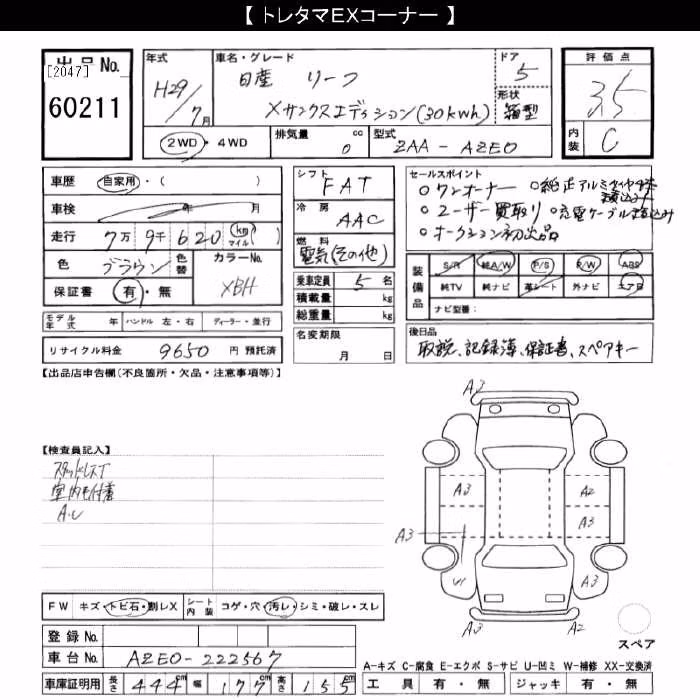 【 トレタマEXコーナー 】
出品No.
[2047]
60211
年式
H29/7月
車名・グレード
日産 リーフ
Xサンクスエディション(30kwh)
ドア
5
形状
箱型
評価点
3.5
内装
C
2WD・4WD
排気量 0 cc
型式 ZAA-AZE0
車歴 自家用・( )
車検 年 月
走行 7万9千620 (km マイル)
色 ブラウン 色替
カラーNo. XBH
保証書 有・無
シフト
FAT
冷房
AAC
燃料
電気(その他)
乗車定員 5 名
積載量 kg
総重量 kg
セールスポイント
○ワンオーナー ○純正アルミ
○ユーザー買取り ○充電ケーブル積込み
○オークション初出品
装備品
S/R 純A/W P/S P/W ABS
純TV 純ナビ 革シート 外ナビ エアB
ナビ型番:
モデル年式 年 ハンドル 左・右 ディーラー・並行
リサイクル料金 9650 円 預託済
名変期限
月 日
後日品
取説、記録簿、保証書、スペアキー
【出品店申告欄(不良箇所・欠品・注意事項等)】
【検査員記入】
スタッドレスT
室内毛付着
A.U
A3
A3 A2
A3
A3
U1 A3
A3 A2
スペア
FW キズ・トビ石・割レX
シート内装 コゲ・穴・汚レ・シミ・破レ・スレ
登録No.
車台No. AZE0-222567
車庫証明用 長さ 444 cm 幅 177 cm 高さ 155 cm
A-キズ C-腐食 E-エクボ S-サビ U-凹ミ W-補修 XX-交換済
工具 有・無 ジャッキ 有・無